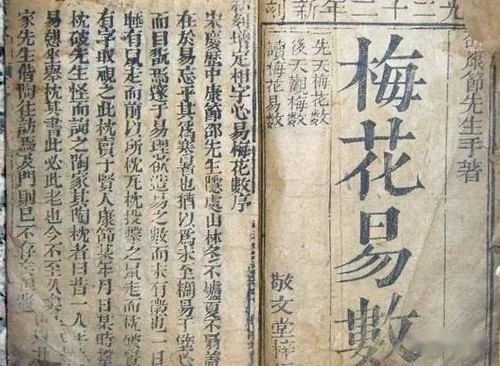 三十二年新刻
康節先生手著
梅花易數
先天梅花數
後天觀梅數
讀梅花易數
敬文堂梓
刻增定相字心易梅花數序
宋慶曆中康節邵先生隱處山林冬不爐夏不扇蓋
在於易忘乎其為寒暑也猶以為未至糊易于壁心
而目翫焉邃于易理欲造易之數而未有徵也一日
睡有鼠走而前以所枕瓦枕投擊之鼠走而枕破覺
有字取視之此枕賣于賢人康節某年月日某時擊
枕破先生怪而詢之陶家其陶枕者曰昔一人
易憩坐舉枕其書此必此老也今不至久矣
家先生偕陶往訪焉及門則已不存矣